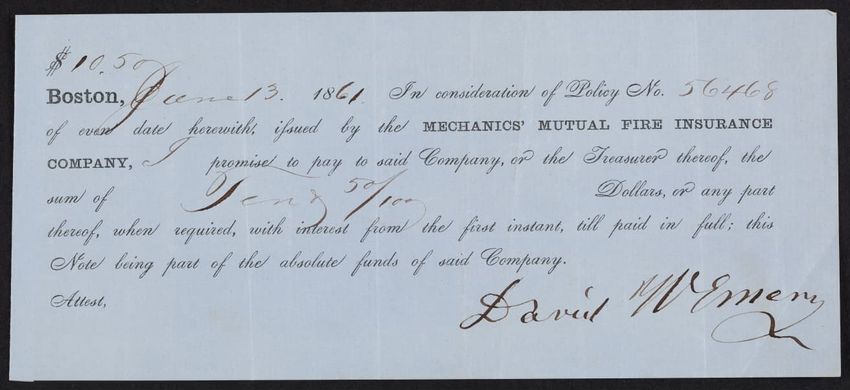 $10.50
Boston, June 13. 1861. In consideration of Policy No. 56468
of even date herewith, issued by the MECHANICS' MUTUAL FIRE INSURANCE
COMPANY, I promise to pay to said Company, or the Treasurer thereof, the
sum of Ten & 50/100 Dollars, or any part
thereof, when required, with interest from the first instant, till paid in full; this
Note being part of the absolute funds of said Company.
Attest,
David W Emery